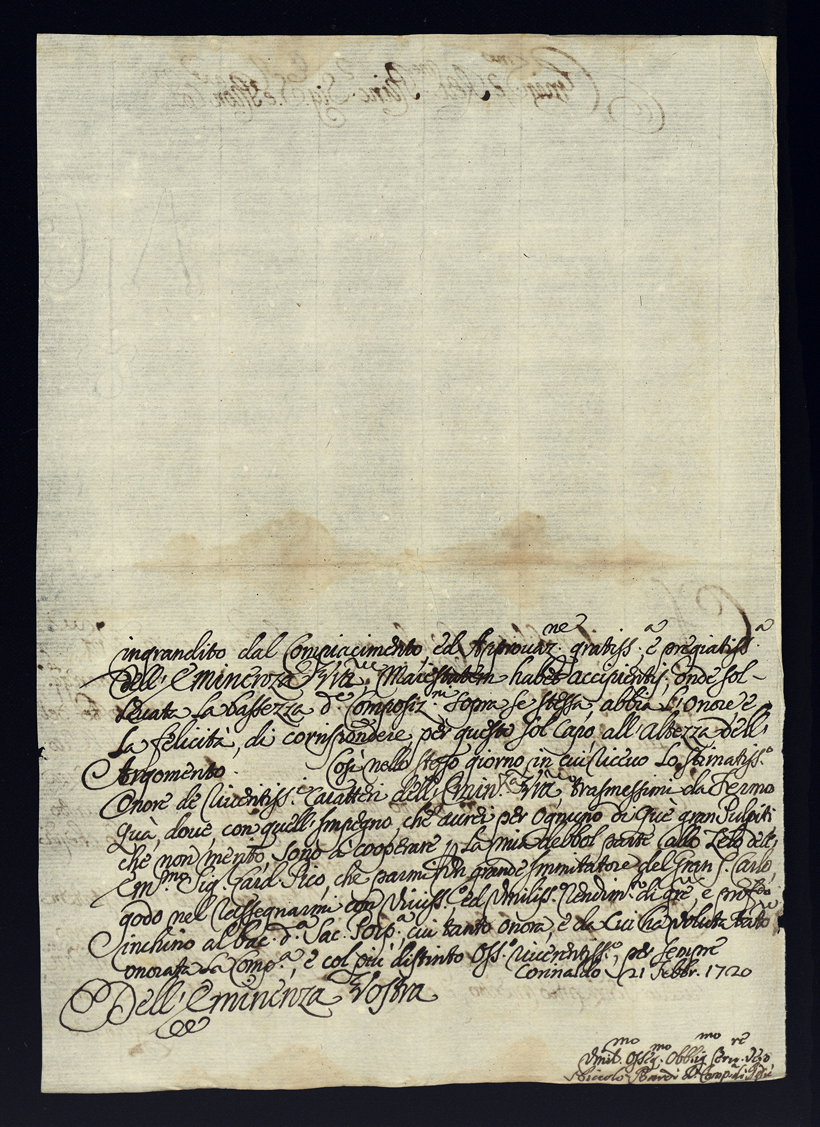 ingrandito dal Compiacimento ed Approvaz.ne gratiss.a e pregiatiss.a
dell'Eminenza Vra. Maiestatem habet accipientis, onde sol-
levata la bassezza de Composiz.ni sopra se stessa, abbia l'Onore e
la felicità, di corrispondere per questo sol Capo, all'Altezza dell'
Argomento. Così nello stesso giorno, in cui ricevo lo stimatiss.o
Onore de riveritiss.i caratteri dell'Emin.za Vra trasmessimi da Fermo
quà, dove con quell'Impegno, che avrei per ognuno di què gran Pulpiti
che non merito, sono à cooperare la mia debbol parte allo Zelo dell'
Em.mo Sig. Card. Pico, che parmi un grande Immitatore del Gran S. Carlo,
godo nel rassegnarmi con viviss.o ed umiliss. rendim.to di gre, e
inchino al bac. d.a Sac. Porp.a, cui tanto onora, e da cui ha voluta
onorata la Comp.a, e col più distinto Oss.o riverentiss.o, per sempre
Corinaldo 21 Febbr. 1720
Dell'Eminenza Vostra
Umil.mo Osseq.mo Obblig.mo Serv.re
Niccolò Bardi d. Comp.a di Giesù